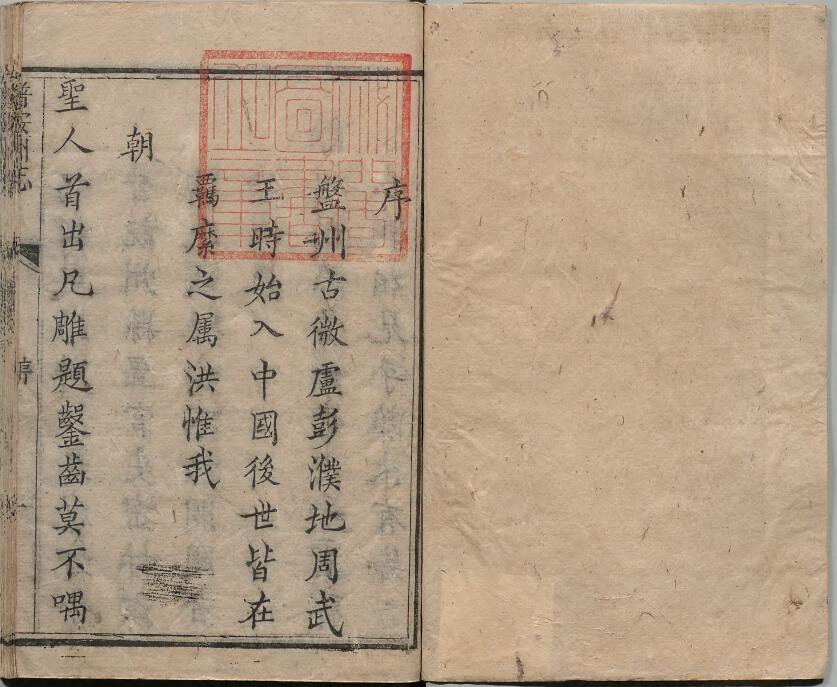 序
盤州古微盧彭濮地周武
王時始入中國後世皆在
羈縻之属洪惟我
朝
聖人首出凡雕題鑿齒莫不喁
普安州志
序